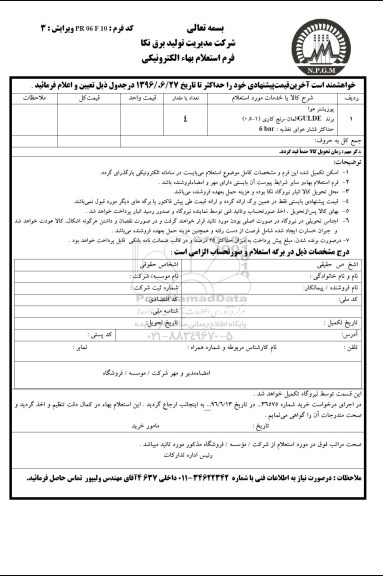 بسمه تعالی
کد فرم : PR 06 F 10 ویرایش : ۳
شرکت مدیریت تولید برق نکا
فرم استعلام بهاء الکترونیکی
N.P.G.M
خواهشمند است آخرین قیمت پیشنهادی خود را حداکثر تا تاریخ ۱۳۹۶/۰۶/۲۷ درجدول ذیل تعیین و اعلام فرمائید .
ردیف شرح کالا یا خدمات مورد استعلام تعداد یا مقدار قیمت واحد قیمت کل ملاحظات
۱ پوزیشنر هوا ۴
برند GULDE آلمان-رنج کاری (۱-۰.۵)
حداکثر فشار هوای تغذیه : 6 bar
جمع کل به حروف:
ذکر مهر و زمان تحویل کالا حتماً قید گردد.
توضیحات:
۱- اسکن تکمیل شده این فرم و مشخصات کامل موضوع استعلام می‌بایست در سامانه الکترونیکی بارگذاری گردد.
۲- فرم استعلام بهاء و سایر شرایط پیوست آن بایستی دارای مهر و امضاء فروشنده باشد .
۳- محل تحویل کالا انبار نیروگاه نکا بوده و هزینه حمل بعهده فروشنده می‌باشد.
۴- قیمت پیشنهادی بایستی فقط در همین برگ ارائه گردد و ارائه قیمت طی پیش فاکتور یا برگه های دیگر مورد قبول نمی‌باشد.
۵- بهای کالا پس از تحویل ، اخذ صورتحساب و تائید فنی توسط نماینده نیروگاه و صدور رسید انبار پرداخت خواهد شد .
۶- اجناس تحویلی در نیروگاه در صورت اصلی بودن مورد تائید قرار خواهد گرفت و در صورت نقصان و داشتن هرگونه اشکال، کالا عودت خواهد شد
و جبران خسارت ایجاد شده شامل فرصت از دست رفته و همچنین هزینه حمل بعهده فروشنده می‌باشد.
۷- درصورت برنده شدن، مبلغ پیش پرداخت به میزان حداکثر ۲۵ درصد و در قالب ضمانت نامه بانکی قابل پرداخت خواهد بود .
درج مشخصات ذیل در برگه استعلام و صورتحساب الزامی است :
اشخاص حقیقی اشخاص حقوقی
نام و نام خانوادگی : نام موسسه/ شرکت :
نام فروشنده / پیمانکار: شماره ثبت شرکت :
کد ملی: کد اقتصادی :
شناسه ملی:
تاریخ تکمیل : تاریخ تحویل:
آدرس: کد پستی :
تلفن : نام کارشناس مربوطه و شماره همراه : نمابر :
امضاء مدیر و مهر شرکت / موسسه / فروشگاه
این قسمت توسط نیروگاه تکمیل خواهد شد .
در اجرای درخواست خرید شماره ۳۶۵۷۵.. در تاریخ ۹۶/۶/۱۳.. به اینجانب ارجاع گردید . این استعلام بهاء در کمال دقت تنظیم و اخذ گردید و
صحت مندرجات آن را گواهی می‌نمایم .
تاریخ : مامور خرید
صحت مراتب فوق در مورد استعلام از شرکت / مؤسسه / فروشگاه مذکور مورد تائید میباشد .
رئیس اداره تدارکات
ملاحظات : درصورت نیاز به اطلاعات فنی با شماره ۳۴۶۲۲۳۴۲-۰۱۱ داخلی ۴۶۳۷ آقای مهندس ولیپور تماس حاصل فرمائید.
ParsNamadData
۰۲۱-۸۸۳۴۹۶۷۰-۵